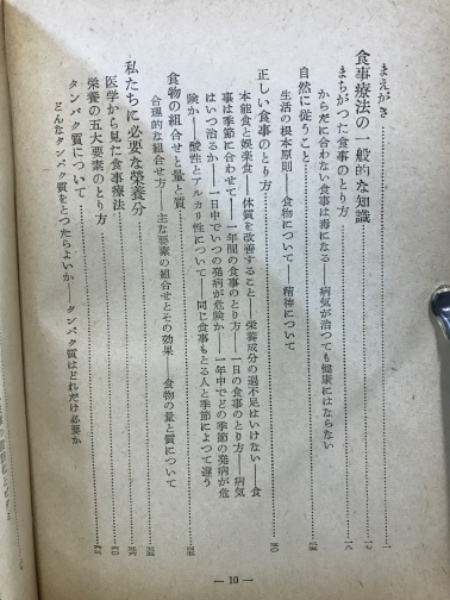 まえがき……一
食事療法の一般的な知識……一七
まちがつた食事のとり方……一八
からだに合わない食事は毒になる——病気が治つても健康にはならない
自然に従うこと
生活の根本原則——食物について——精神について
正しい食事のとり方……三〇
本能食と娯楽食——体質を改善すること——栄養成分の過不足はいけない——食
事は季節に合わせて——一年間の食事のとり方——一日の食事のとり方——病気
はいつ治るか——一日中でいつの発病が危険か——一年中でどの季節の発病が危
険か——酸性とアルカリ性について——同じ食事もとる人と季節によつて違う
食物の組合せと量と質
合理的な組合せ方——主な要素の組合せとその効果——食物の量と質について
私たちに必要な栄養分
医学から見た食事療法……六〇
栄養の五大要素のとり方
タンパク質について
どんなタンパク質をとつたらよいか——タンパク質はどれだけ必要か
— 10 —